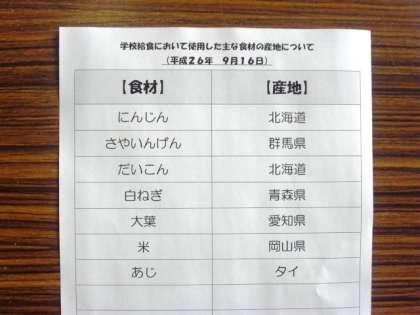 学校給食において使用した主な食材の産地について
（平成２６年　９月１６日）
【食材】　【産地】
にんじん　北海道
さやいんげん　群馬県
だいこん　北海道
白ねぎ　青森県
大葉　愛知県
米　岡山県
あじ　タイ